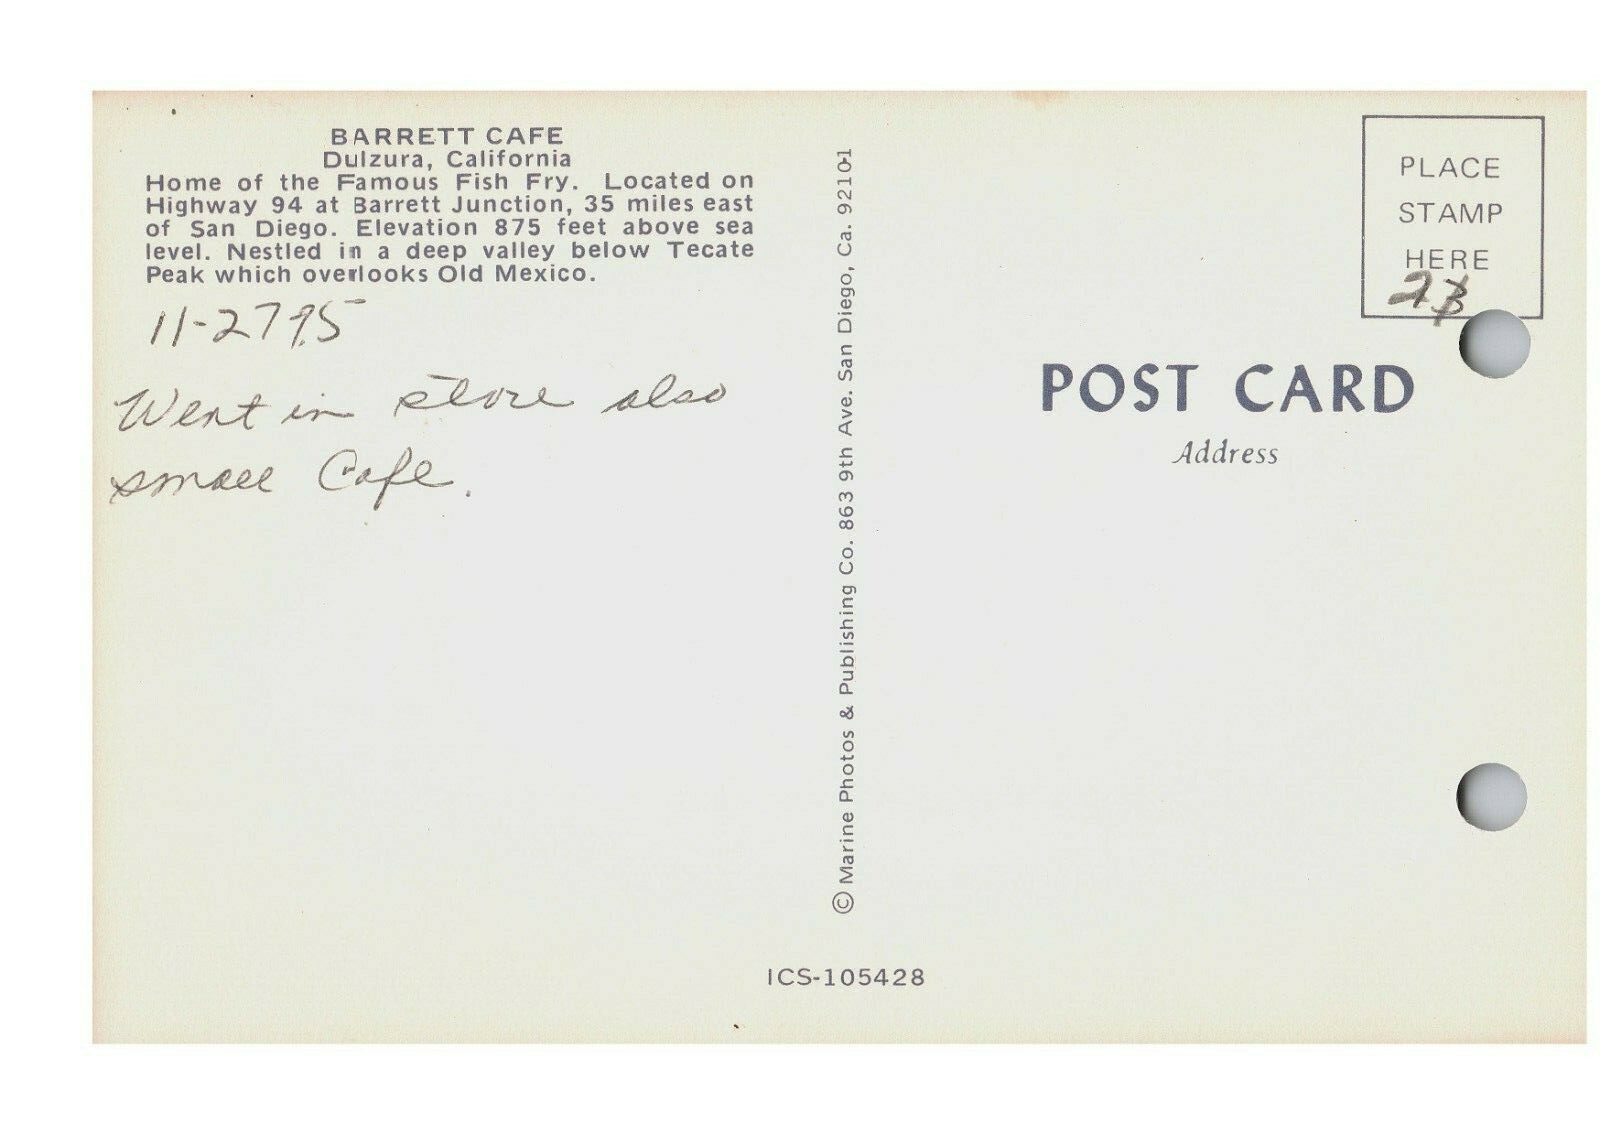 BARRETT CAFE
Dulzura, California
Home of the Famous Fish Fry. Located on
Highway 94 at Barrett Junction, 35 miles east
of San Diego. Elevation 875 feet above sea
level. Nestled in a deep valley below Tecate
Peak which overlooks Old Mexico.
11-27
Went in store also
small Cafe.
© Marine Photos & Publishing Co. 863 9th Ave. San Diego, Ca. 92101
ICS-105428
PLACE
STAMP
HERE
POST CARD
Address